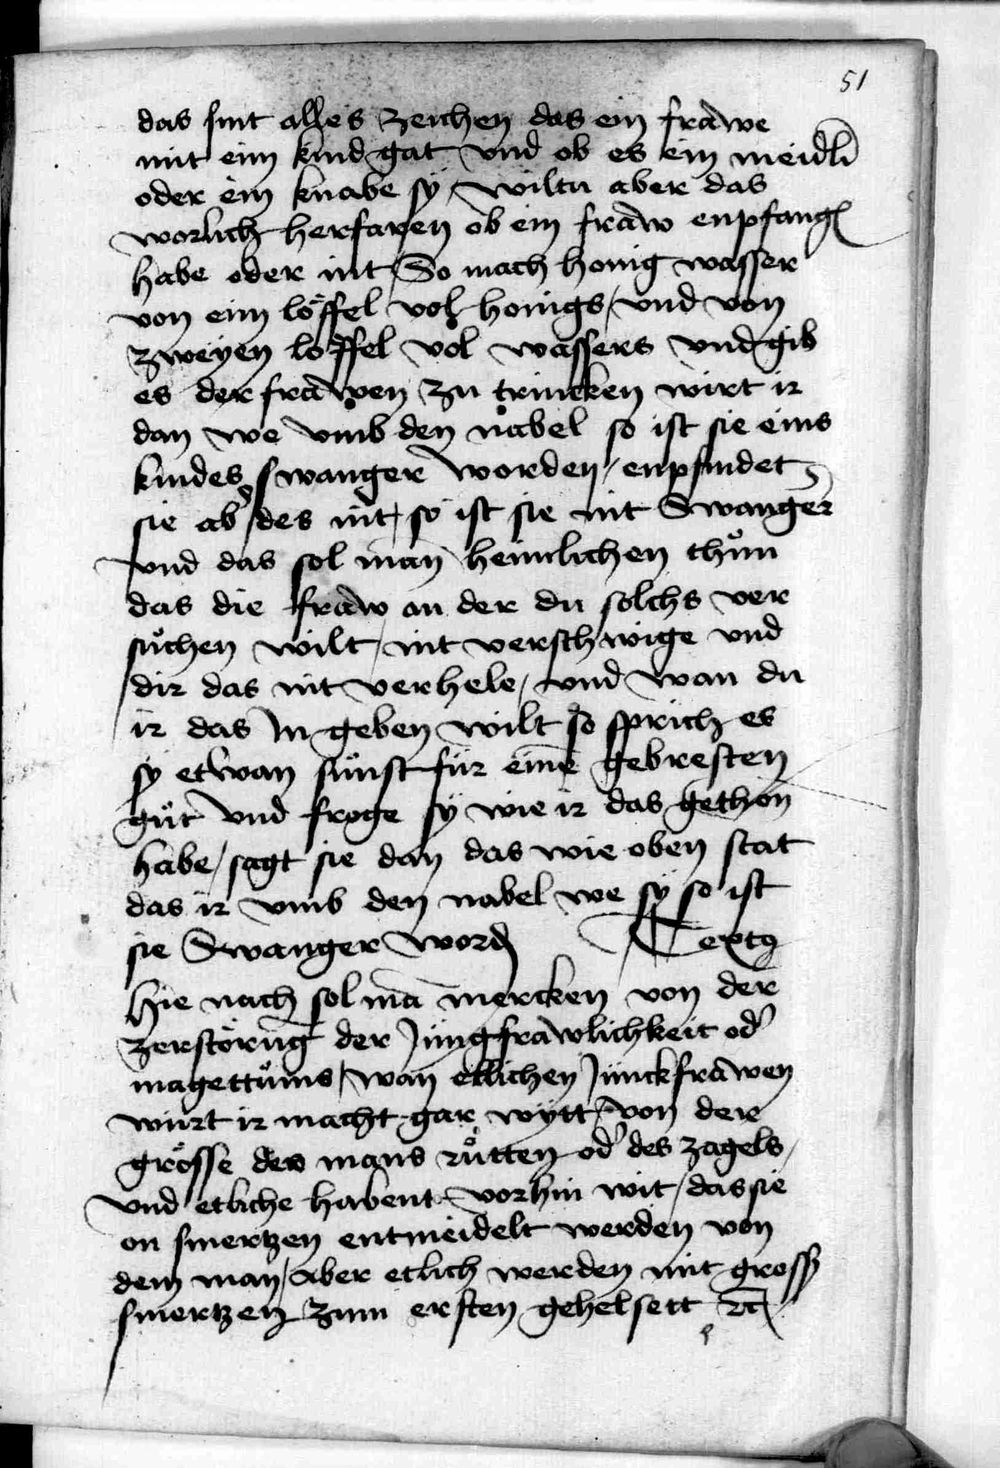 51
das sint alles zeichen das ein frawe
mit eim kind gat vnd ob es ein meidli
oder ein knabe sÿ / wiltu aber das
worlich herfaren ob ein fraw enpfang
habe oder nit / So mach honig wasser
von eim löffel vol honigs / vnd von
zweÿen löffel vol wassers vnd gib
es der frawen zu trincken wirt ir
dan we vmb den nabel so ist sie eins
kindes swanger worden / enpfindet
sie ab des nit / so ist sie nit Swanger
vnd das sol man heimlichen thůn
das die fraw an der du solchs ver
sůchen wilt / nit verschwige vnd
dir das nit verhele / vnd wan du
ir das In geben wilt so sprich es
sÿ etwan sůnst für eine gebresten
gůt vnd froge sÿ wie ir das gethon
habe / sagt sie dan das wie oben stat
das ir vmb den nabel we sÿ so ist
sie Swanger word Textꝰ
Hie nach sol mā mercken von der
zerstörūg der Jungfrawlichkeit od
magettůms / wan etlichen Junckfrawen
würt ir macht gar wÿtt / von der
grösse des mans růtten od des zagels /
vnd etliche habent vorhin wit / das sie
on smertzen entmeidelt werden von
dem man / Aber etlich werden mit gross
smertzen zum ersten gehelsett ꝛc